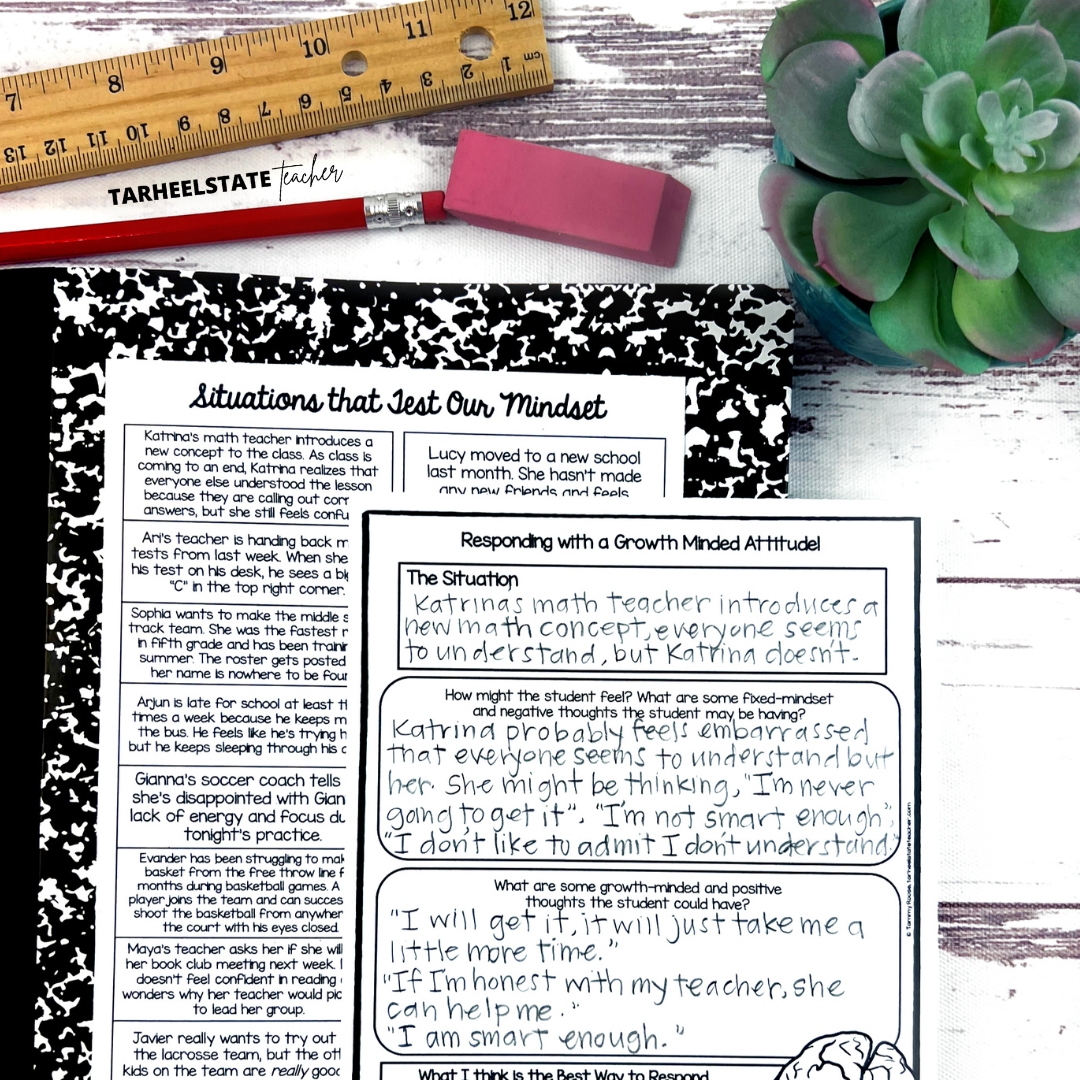 7 8 9 10 11 12
13 12 11 10 9 8 7 6 5 4 3 2 1 cm
TARHEELSTATE teacher
Situations that Test Our Mindset
Katrina's math teacher introduces a
new concept to the class. As class is
coming to an end, Katrina realizes that
everyone else understood the lesson
because they are calling out
answers, but she still feels
Lucy moved to a new school
last month. She hasn't made
any new friends and feels
Ari's teacher is handing back
tests from last week. When she
his test on his desk, he sees a
"C" in the top right corner.
Sophia wants to make the middle
track team. She was the fastest
in fifth grade and has been
summer. The roster gets posted
her name is nowhere to be
Arjun is late for school at least
times a week because he keeps
the bus. He feels like he's trying
but he keeps sleeping through his
Gianna's soccer coach tells
she's disappointed with
lack of energy and focus
tonight's practice.
Evander has been struggling to
basket from the free throw line
months during basketball games. A
player joins the team and can
shoot the basketball from
the court with his eyes closed
Maya's teacher asks her if she will
her book club meeting next week.
doesn't feel confident in reading
wonders why her teacher would
to lead her group.
Javier really wants to try out
the lacrosse team, but the
kids on the team are really
Responding with a Growth Minded Attitude!
The Situation
Katrinas math teacher introduces a
new math concept, everyone seems
to understand, but Katrina doesn't.
How might the student feel? What are some fixed-mindset
and negative thoughts the student may be having?
Katrina probably feels embarrassed
that everyone seems to understand but
her. She might be thinking, "I'm never
going to get it", "I'm not smart enough",
"I don't like to admit I don't understand."
What are some growth-minded and positive
thoughts the student could have?
"I will get it, it will just take me a
little more time."
"If I'm honest with my teacher, she
can help me."
"I am smart enough."
What I think is the Best Way to Respond
© Tammy Roose, tarheelstateteacher.com